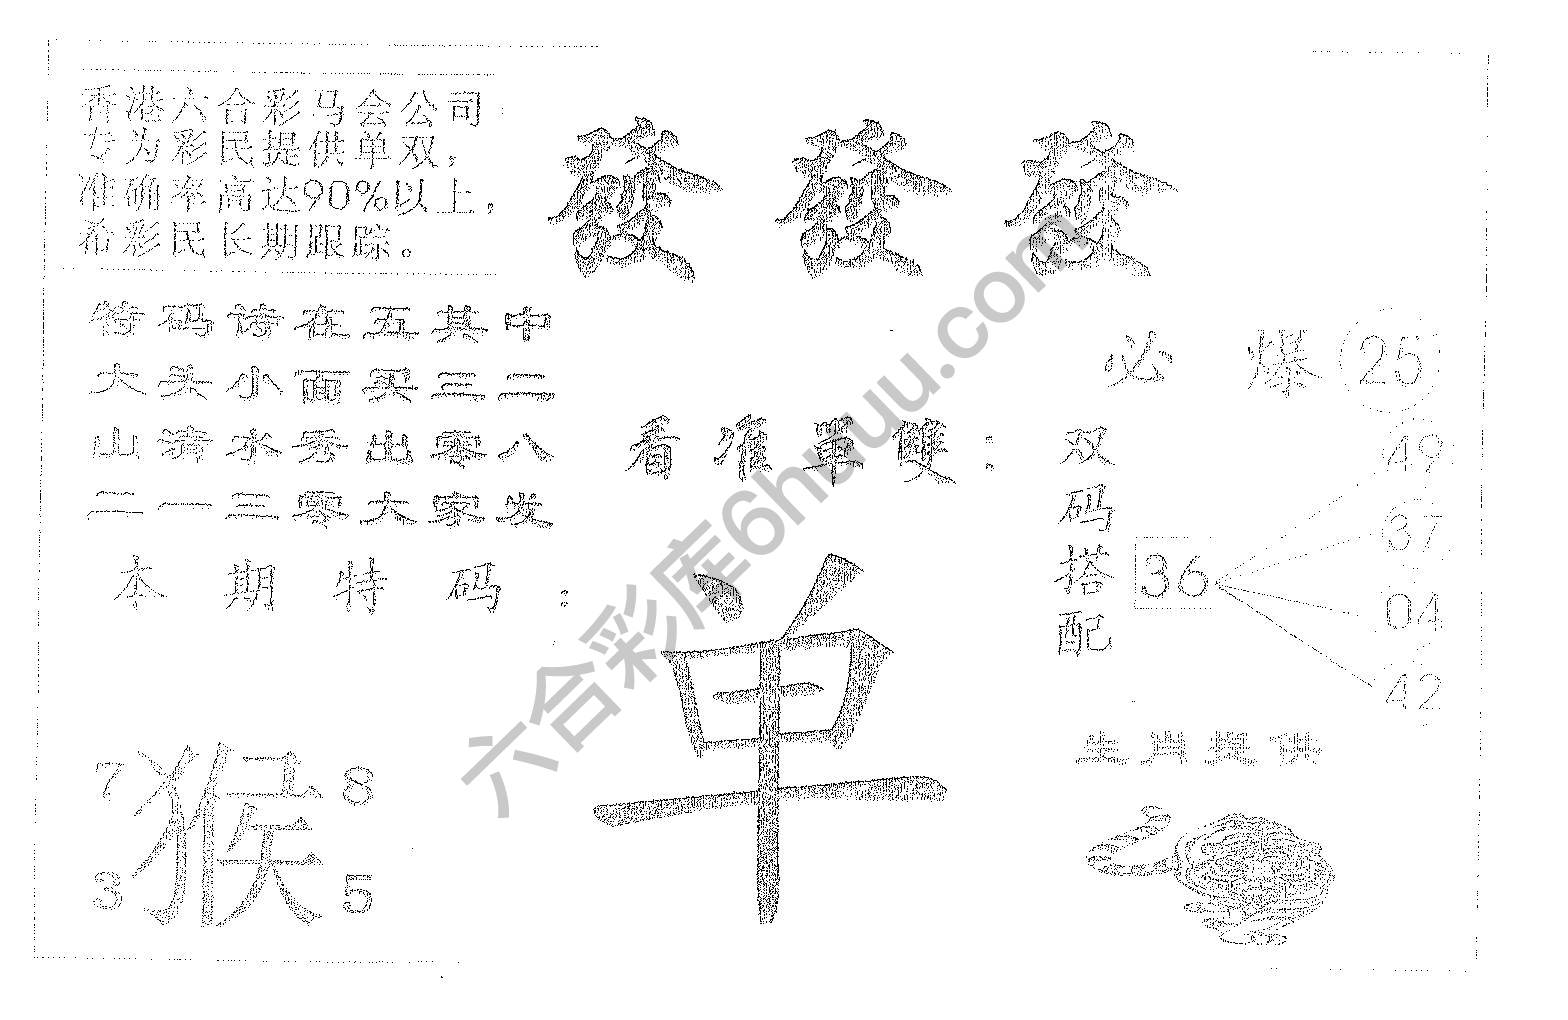 香港六合彩马会公司
专为彩民提供单双，
准确率高达90%以上，
希彩民长期跟踪。
發 發 發
特码诗在五其中
大头小面买三二
山清水秀出零八
二一三零大家发
本期特码：
看准單雙：
单
必爆 25
双码搭配
36
49
37
04
42
7 猴 8
3 5
生肖提供
六合彩库6huuu.com